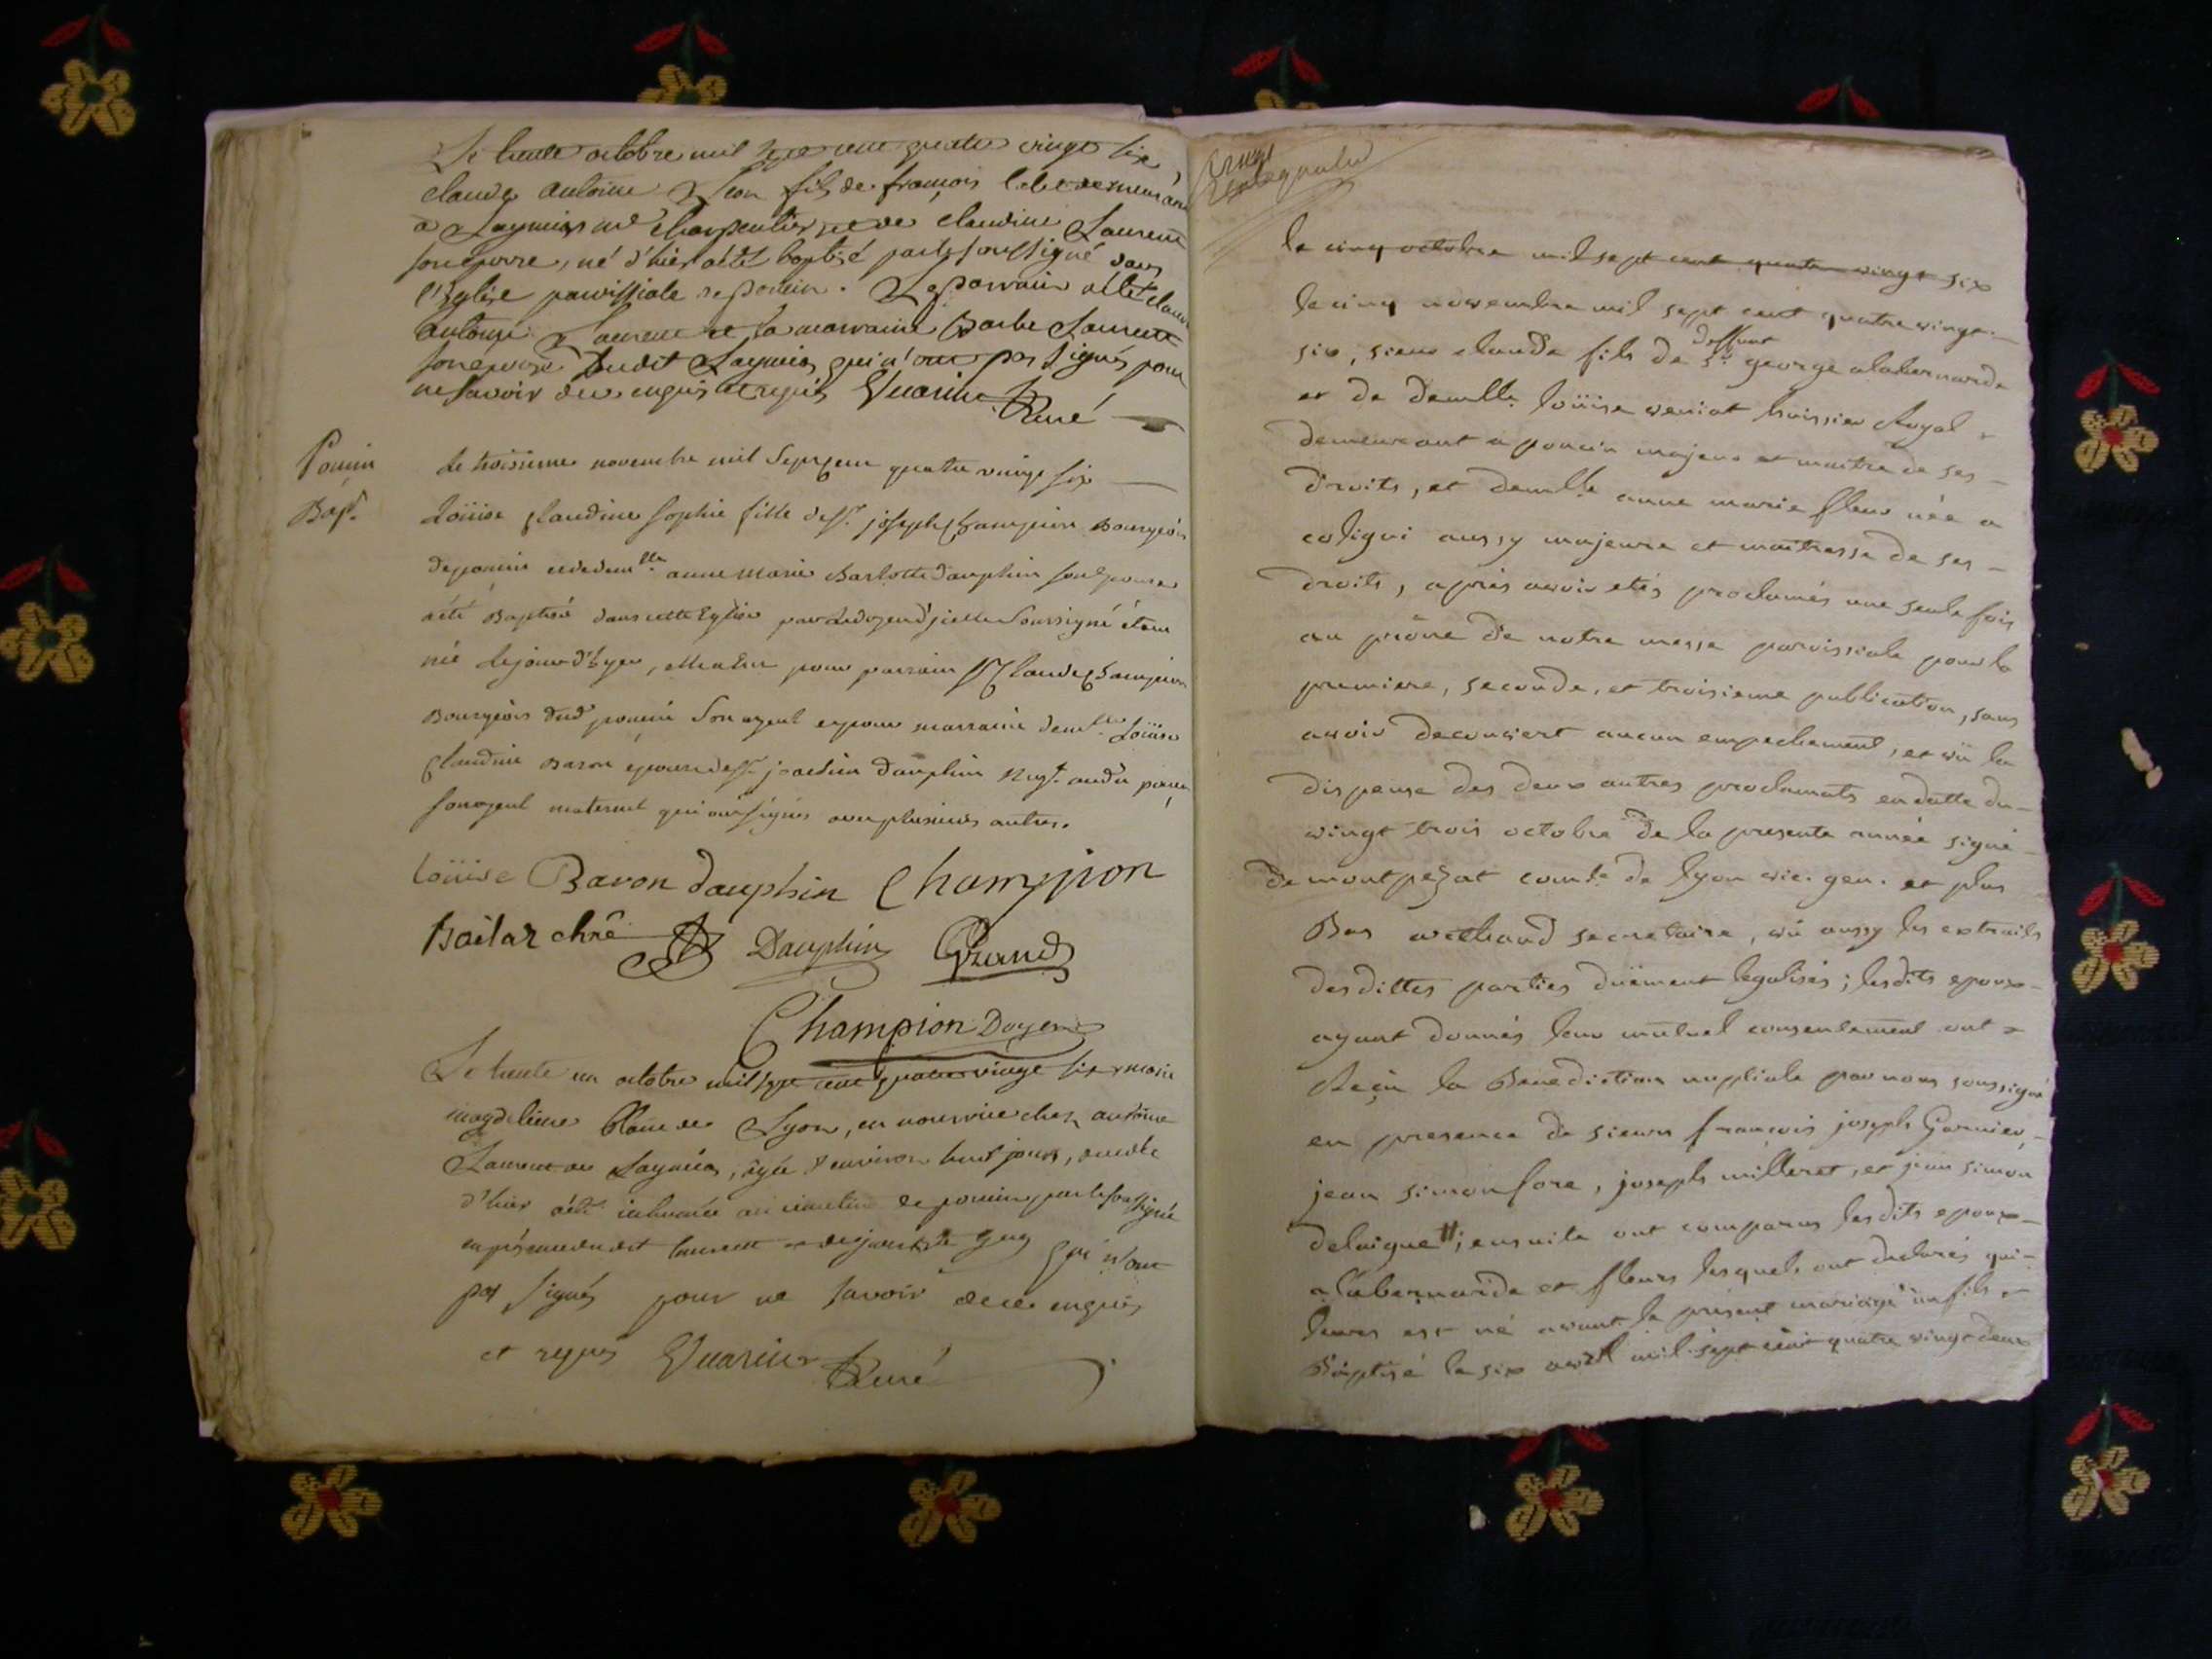 Le trente octobre mil sept cent quatre vingt six,
claude antoine Leon fils de françois
a Leymiat md charpentier et de claudine Laurent
son epouse, né d'hier a été baptisé par le soussigné dans
l'Eglise paroissiale de poncin. Le parrain a été claude
antoine Laurent et la marraine Barbe Laurent
son epouse dudit Leymiat qui n'ont pas signés pour
ne savoir de ce enquis et requis Guarin
Curé
Poncin
Bapt.
Le troisieme novembre mil Sept cent quatre vingt six
Loüise Claudine Sophie fille de sr. joseph Champion Bourgeois
de poncin et de demlle anne marie Charlotte dauphin son epouse
a été Baptisé dans cette Eglise par le doyen d'jcelle Soussigné étant
née le jour d'hyer, elle a eu pour parrain sr Claude Champion
Bourgeois dud poncin Son ayeul et pour marraine demlle Loüise
Claudine Baron epouse de sr. joachim Dauphin Negt. aud poncin
son ayeul maternel qui ont signés avec plusieurs autres.
Loüise Baron dauphin Champion
Dauphin Grand
Champion Doyen
Le trente un octobre mil sept cent quatre vingt six marie
magdeleine Blanc de Lyon, en nourrice chez antoine
Laurent de Leymiat, agée d'environ huit jours, morte
d'hier a été inhumée au cimetière de poncin par le soussigné
en présence dudit laurent et de qui n'ont
pas signés pour ne savoir de ce enquis
et requis Guarin
Curé
le cinq octobre mil sept cent quatre vingt six
le cinq novembre mil sept cent quatre vingt
six, sieur claude fils de deffunt sr. george alabernarde
et de demlle loüise veniat huissier Royal
demeurant a poncin majeur et maitre de ses
droits, et demlle anne marie fleur née a
coligni aussy majeure et maitresse de ses
droits, après avoir etés proclamés une seule fois
au prône de notre messe paroissiale pour la
premiere, seconde, et troisieme publication, sans
avoir decouvert aucun empechement, et vü la
dispense des deux autres proclamats en datte du
vingt trois octobre de la presente année signé
de montpezat comte de lyon vic. gen. et plus
Bas secretaire, vü aussy les extraits
desdittes parties düement legalisés; lesdits epoux
ayant donnés leur mutuel consentement ont
Reçu la Benediction nuptiale par nous soussigné
en presence de sieurs françois joseph Garnier,
jean simon fore, joseph milleret, et jean simon
delaigue; ensuite ont comparus lesdits epoux
alabernarde et fleur lesquels ont declarés qui
leurs est né avant le présent mariage un fils
Baptisé le six avril mil sept cent quatre vingt deux